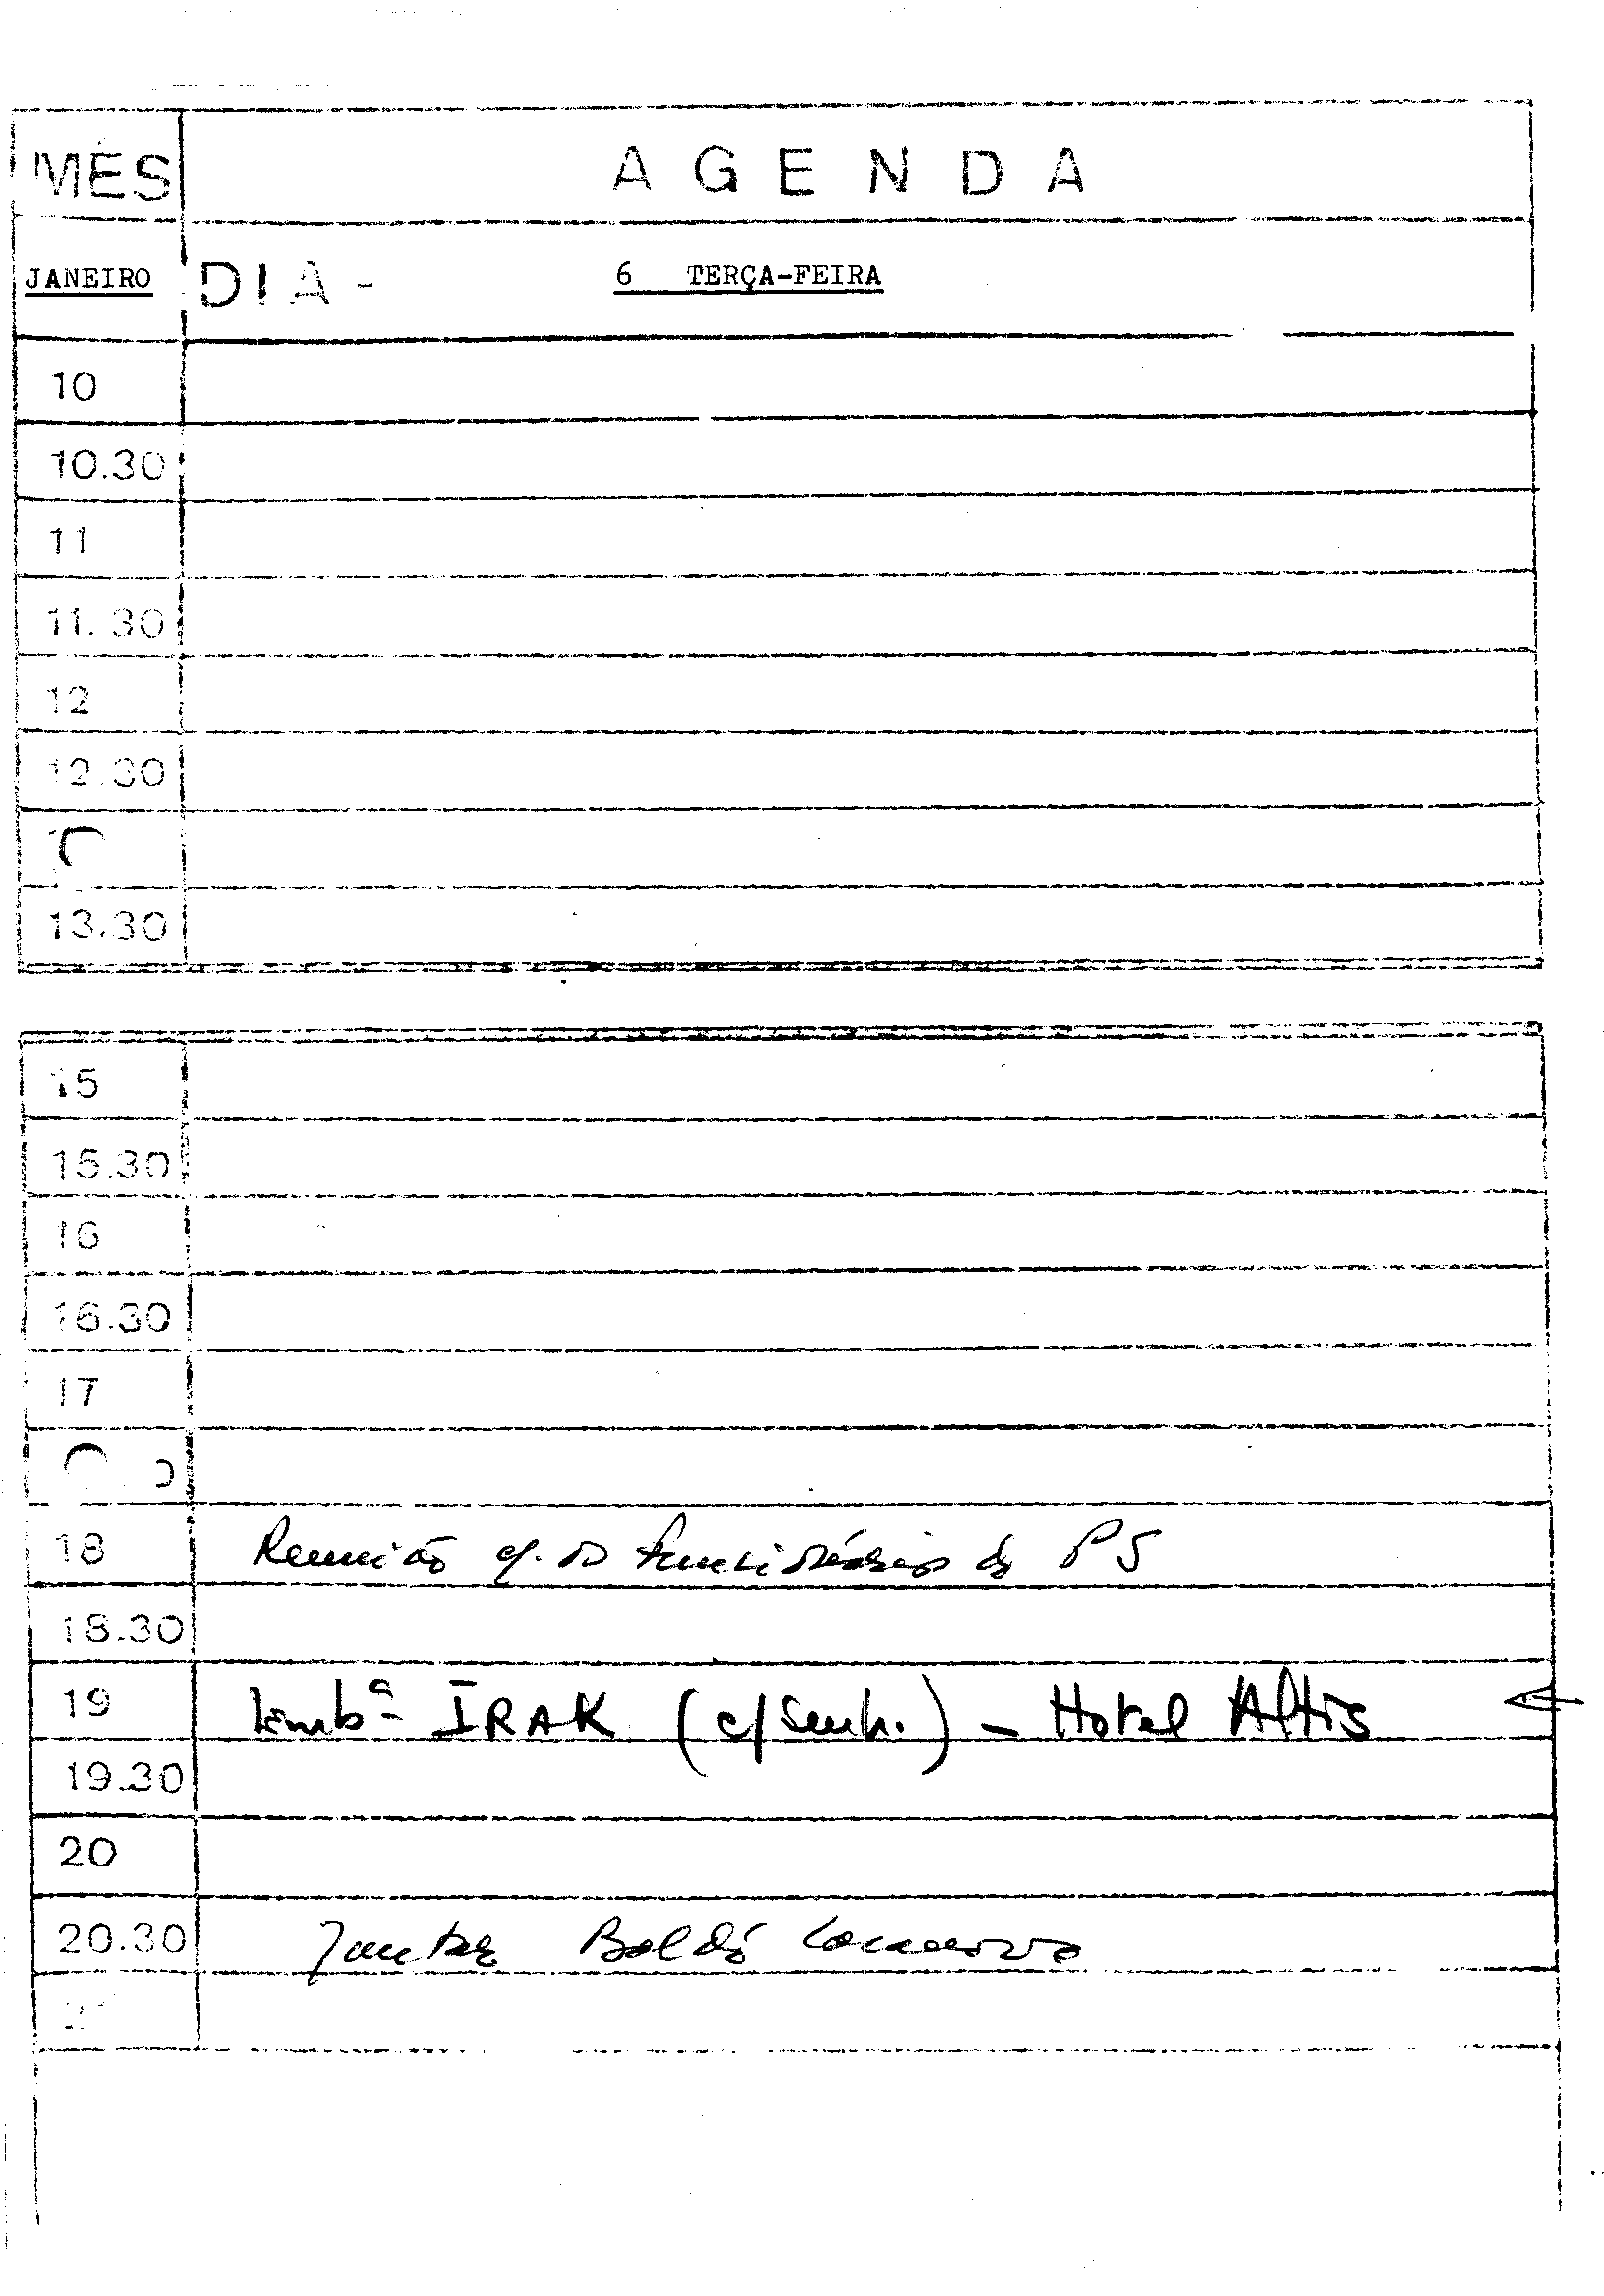 MÊS AGENDA
JANEIRO DIA - 6 TERÇA-FEIRA
10
10.30
11
11.30
12
12.30
13.30
15
15.30
16
16.30
17
18 Reunião c/. os funcionários do PS
18.30
19 Embª IRAK (c/senh.) - Hotel Altis
19.30
20
20.30 Jantar